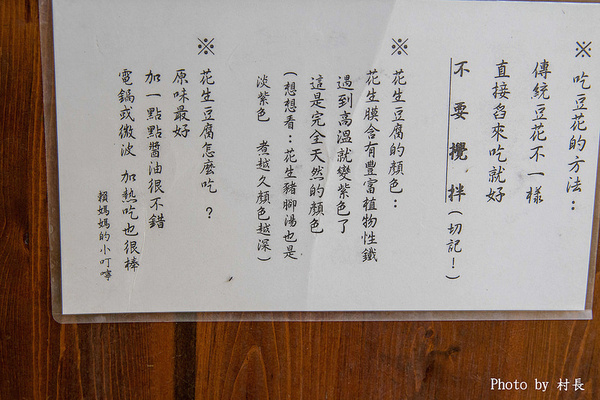 ※ 吃豆花的方法：
傳統豆花不一樣
直接舀來吃就好
不要攪拌(切記！)
※ 花生豆腐的顏色：
花生膜含有豐富植物性鐵
遇到高溫就變紫色了
這是完全天然的顏色
(想想看：花生豬腳湯也是
淡紫色 煮越久顏色越深)
※ 花生豆腐怎麼吃？
原味最好
加一點點醬油很不錯
電鍋或微波 加熱吃也很棒
賴媽媽的小叮嚀
Photo by 村長